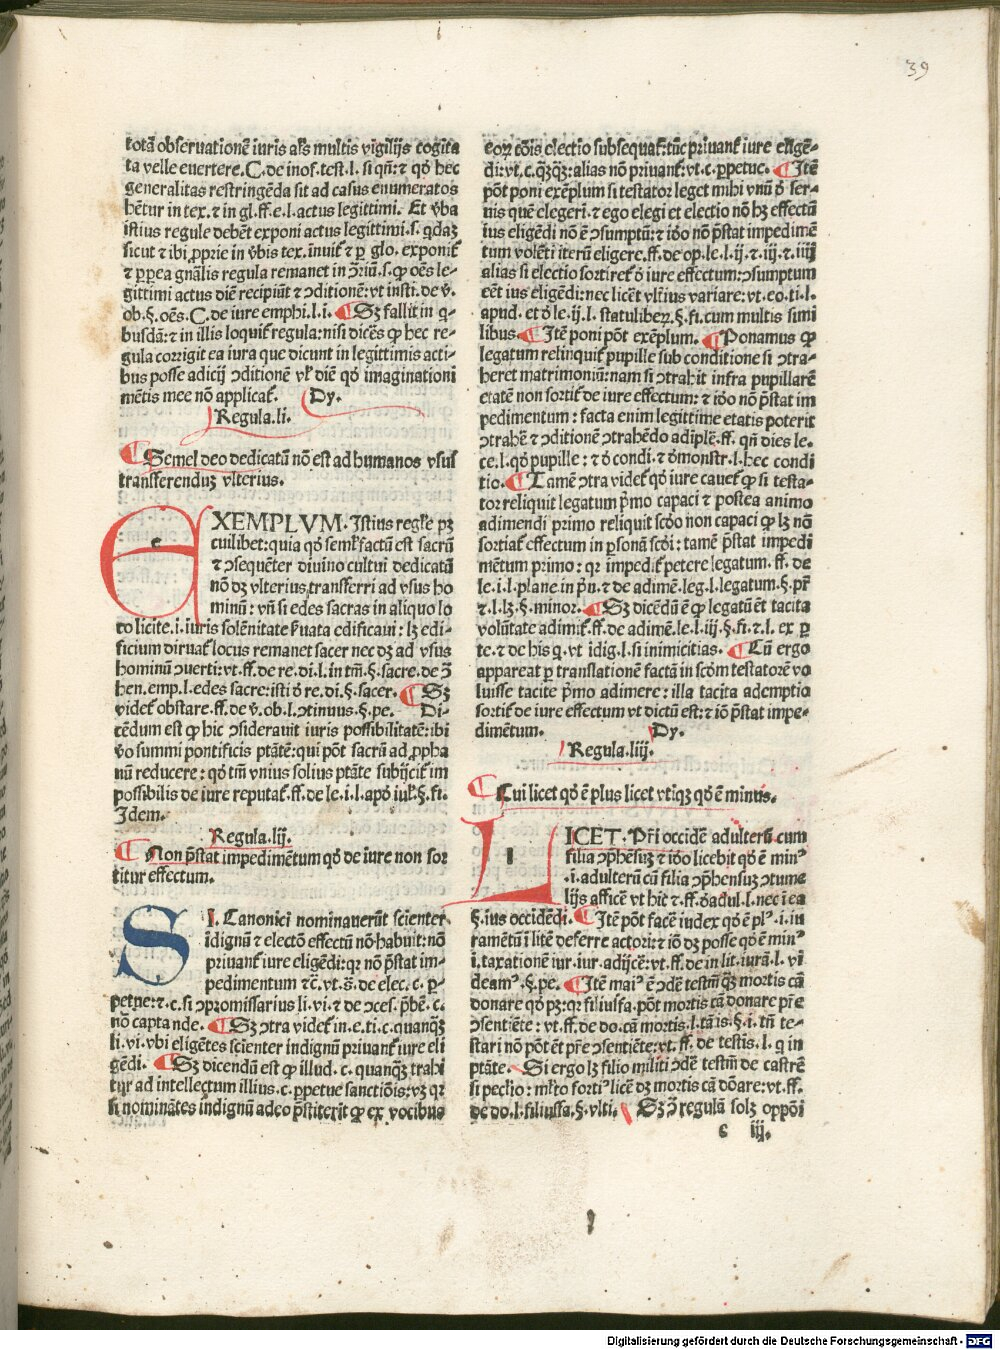 39
totā obseruationē iuris al's multis vigilijs cogita
ta velle euertere. C. de inof. test. l. si qñ: ⁊ qđ hec
generalitas restringēda sit ad casus enumeratos
hētur in tex. ⁊ in gl. ff. e. l. actus legittimi. Et v̄ba
istius regule debēt exponi actus legittimi. s. qdaz
sicut ⁊ ibi ꝓprie in v̄bis tex. inuit̄ ⁊ ꝑ glo. exponit̄
⁊ ꝑ ꝑea gn̄alis regula remanet in ꝯ̄riū. s. ꝙ oēs le-
gittimi actus diē recipiūt ⁊ ꝯditionē: vt insti. de v̄.
ob. §. oēs. C. de iure emphi. l. i. ¶ Sz fallit in q-
busdā: ⁊ in illis loquit̄ regula: nisi dicēs ꝙ hec re-
gula corrigit ea iura que dicunt in legittimis acti-
bus posse adicij ꝯditionē vl' diē qđ imaginationi
mētis mee nō applicat̄. Dy.
Regula. li.
¶ Semel deo dedicatū nō est ad humanos vsus
transferenduz vlterius.
EXEMPLVM. Istius regl'e pz
cuilibet: quia qđ seml' factū est sacrū
⁊ ꝯsequēter diuino cultui dedicatū
nō dz vlterius transferri ad vsus ho
minū: vñ si edes sacras in aliquo lo
co licite. i. iuris solēnitate ẜuata edificaui: lz edi-
ficium diruat̄ locus remanet sacer nec dz ad vsus
hominū ꝯuerti: vt. ff. de re. di. l. in tm̄. §. sacre. de ꝯ̄
hen. emp. l. edes sacre: isti ō re. di. §. sacer. ¶ Sz
videt̄ obstare. ff. de v̄. ob. l. ꝯtinuus. §. pe. Di-
cēdum est ꝙ hic ꝯsiderauit iuris possibilitatē: ibi
v̄o summi pontificis ptātē: qui pōt sacrū ad ꝓpha
nū reducere: qđ tm̄ vnius solius ptāte subijcit̄ im
possibilis de iure reputat̄. ff. de le. i. l. apđ iul'. §. fi.
Idem.
Regula. lij.
¶ Non p̄stat impedimētum qđ de iure non sor
titur effectum.
SI. Canonici nominauerūt scienter
īdignū ⁊ electō effectū nō habuit: nō
priuant̄ iure eligēdi: qr nō p̄stat im-
pedimentum ⁊c̄. vt. s̄. de elec. c. ꝑ-
petue: ⁊ c. si ꝯpromissarius li. vi. ⁊ de ꝯces. p̄bē. c.
nō captande. ¶ Sz ꝯtra videt̄ in. e. ti. c. quanqz
li. vi. vbi eligētes scienter indignū priuant̄ iure eli
gēdi. ¶ Sz dicendū est ꝙ illud. c. quanqz trahi
tur ad intellectum illius. c. ꝑpetue sanctiōis: vz qr
si nominātes indignū adeo p̄stiterīt ꝙ ex vocibus
eoꝝ cōis electio subsequat̄: tūc priuant̄ iure eligē-
di: vt. c. qzqz: alias nō priuant̄: vt. c. ꝑpetue. ¶ Itē
pōt poni exēplum si testator leget mihi vnū ō ser-
uis quē elegeri. ⁊ ego elegi et electio nō hz effectū
ius eligēdi nō ē ꝯsumptū: ⁊ iđo nō p̄stat impedimē
tum volēti iterū eligere. ff. de op. le. l. ij. ⁊. iij. ⁊. iiij
alias si electio sortiret̄ ō iure effectum: ꝯsumptum
eēt ius eligēdi: nec licēt vl'tius variare: vt. eo. ti. l.
apud. et ō le. ij. l. statuliberꝝ. §. fi. cum multis simi
libus. ¶ Itē poni pōt exēplum. ¶ Ponamus ꝙ
legatum relinquit̄ pupille sub conditione si ꝯtra-
heret matrimoniū: nam si ꝯtrahit infra pupillarē
etatē non sortit̄ de iure effectum: ⁊ iđo nō p̄stat im
pedimentum: facta enim legittime etatis poterit
ꝯtrahē ⁊ ꝯditionē ꝯtrahēdo adiplē. ff. qñ dies le.
ce. l. qđ pupille: ⁊ ō condi. ⁊ ōmonstr. l. hec condi
tio. ¶ Tamē ꝯtra videt̄ qđ iure cauet̄ ꝙ si testa-
tor reliquit legatum p̄mo capaci ⁊ postea animo
adimendi primo reliquit scđo non capaci ꝙ lz nō
sortiat̄ effectum in ꝑsonā scđi: tamē p̄stat impedi
mētum primo: qr impedit̄ petere legatum. ff. de
le. i. l. plane in p̄n. ⁊ de adimē. leg. l. legatum. §. pr̄
⁊. l. lz. §. minor. ¶ Sz dicēdū ē ꝙ legatū ēt tacita
volūtate adimit̄. ff. de adimē. le. l. iij. §. fi. ⁊. l. ex ꝑ
te. ⁊ de his q. vt īdig. l. si inimicitias. ¶ Cū ergo
appareat ꝑ translationē factā in scđm testatorē vo
luisse tacite p̄mo adimere: illa tacita ademptio
sortit̄ de iure effectum vt dictū est: ⁊ iō p̄stat impe-
dimētum. Dy.
Regula. liij.
¶ Cui licet qđ ē plus licet vtiqz qđ ē minus.
LICET. Pr̄i occidē adulterū cum
filia ꝯp̄hēsuz ⁊ iđo licebit qđ ē minꝰ
.i. adulterū cū filia ꝯp̄hensuz ꝯtume
lijs afficē vt hic ⁊. ff. ōadul. l. nec ī ea
§. ius occidēdi. ¶ Itē pōt facē iudex qđ ē plꝰ. i. iu
ramētū ī litē deferre actori: ⁊ iō dz posse qđ ē minꝰ
.i. taxationē iur. iur. adijcē: vt. ff. de in lit. iurā. l. vi
deamꝰ. §. pe. ¶ Itē maiꝰ ē ꝯdē testm̄qz mortis cā
donare qđ pz: qr filiusfa. pōt mortis cā donare pr̄e
ꝯsentiēte: vt. ff. de do. cā mortis. l. tā is. §. i. tn̄ te-
stari nō pōt ēt pr̄e ꝯsentiēte: vt. ff. de testis. l. q in
ptāte. Si ergo lz filio militi ꝯdē testm̄ de castrē
si peclio: ml'to forti' licē dz mortis cā dōare: vt. ff.
de do. l. filiusfa. §. vlti. ¶ Sz ꝯ̄ regulā solz oppōi
e iij.
Digitalisierung gefördert durch die Deutsche Forschungsgemeinschaft - DFG